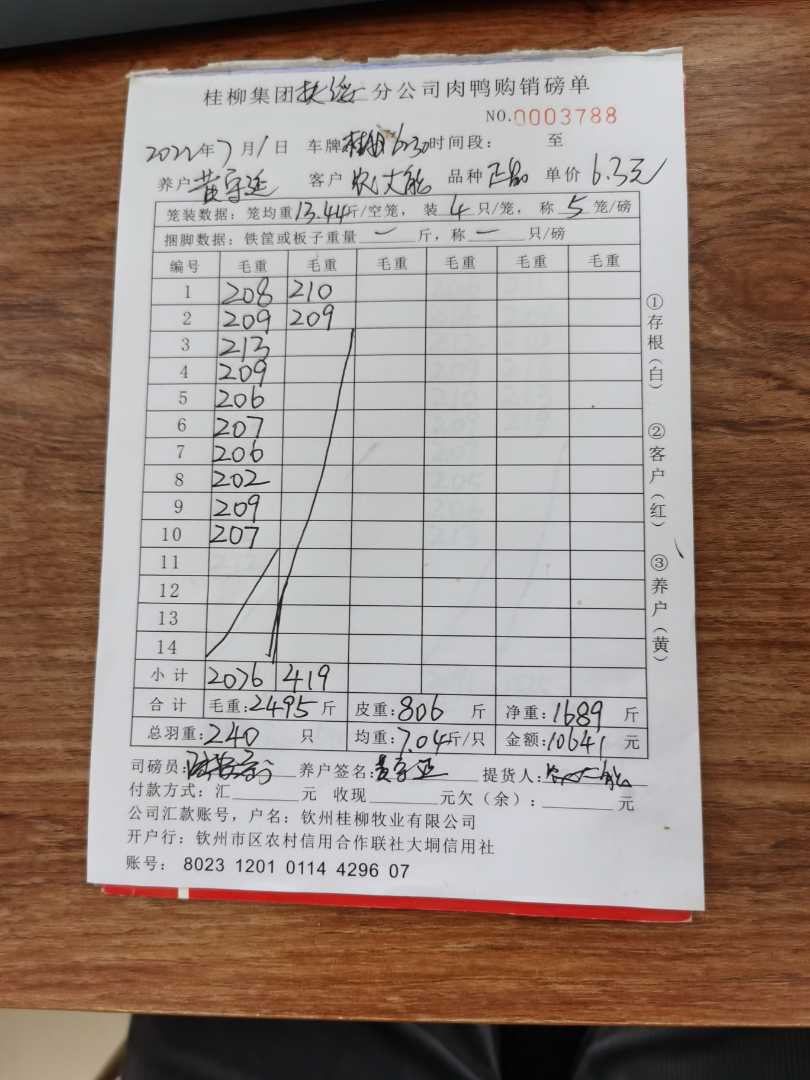 桂柳集团扶绥分公司肉鸭购销磅单
NO.0003788
2022年7月1日 车牌 6230时间段: 至
养户黄守延 客户农大能 品种正品 单价6.3元
笼装数据:笼均重13.44斤/空笼,装4只/笼,称5笼/磅
捆脚数据:铁筐或板子重量一斤,称一只/磅
编号 毛重 毛重 毛重 毛重 毛重 毛重
1 208 210
2 209 209
3 213
4 209
5 206
6 207
7 206
8 202
9 209
10 207
11
12
13
14
小计 2076 419
合计 毛重:2495斤 皮重:806斤 净重:1689斤
总羽重:240只 均重:7.04斤/只 金额:10641元
司磅员: 养户签名:黄守延 提货人:农大能
付款方式:汇 元 收现 元欠(余): 元
公司汇款账号,户名:钦州桂柳牧业有限公司
开户行:钦州市区农村信用合作联社大垌信用社
账号: 8023 1201 0114 4296 07
①存根(白) ②客户(红) ③养户(黄)